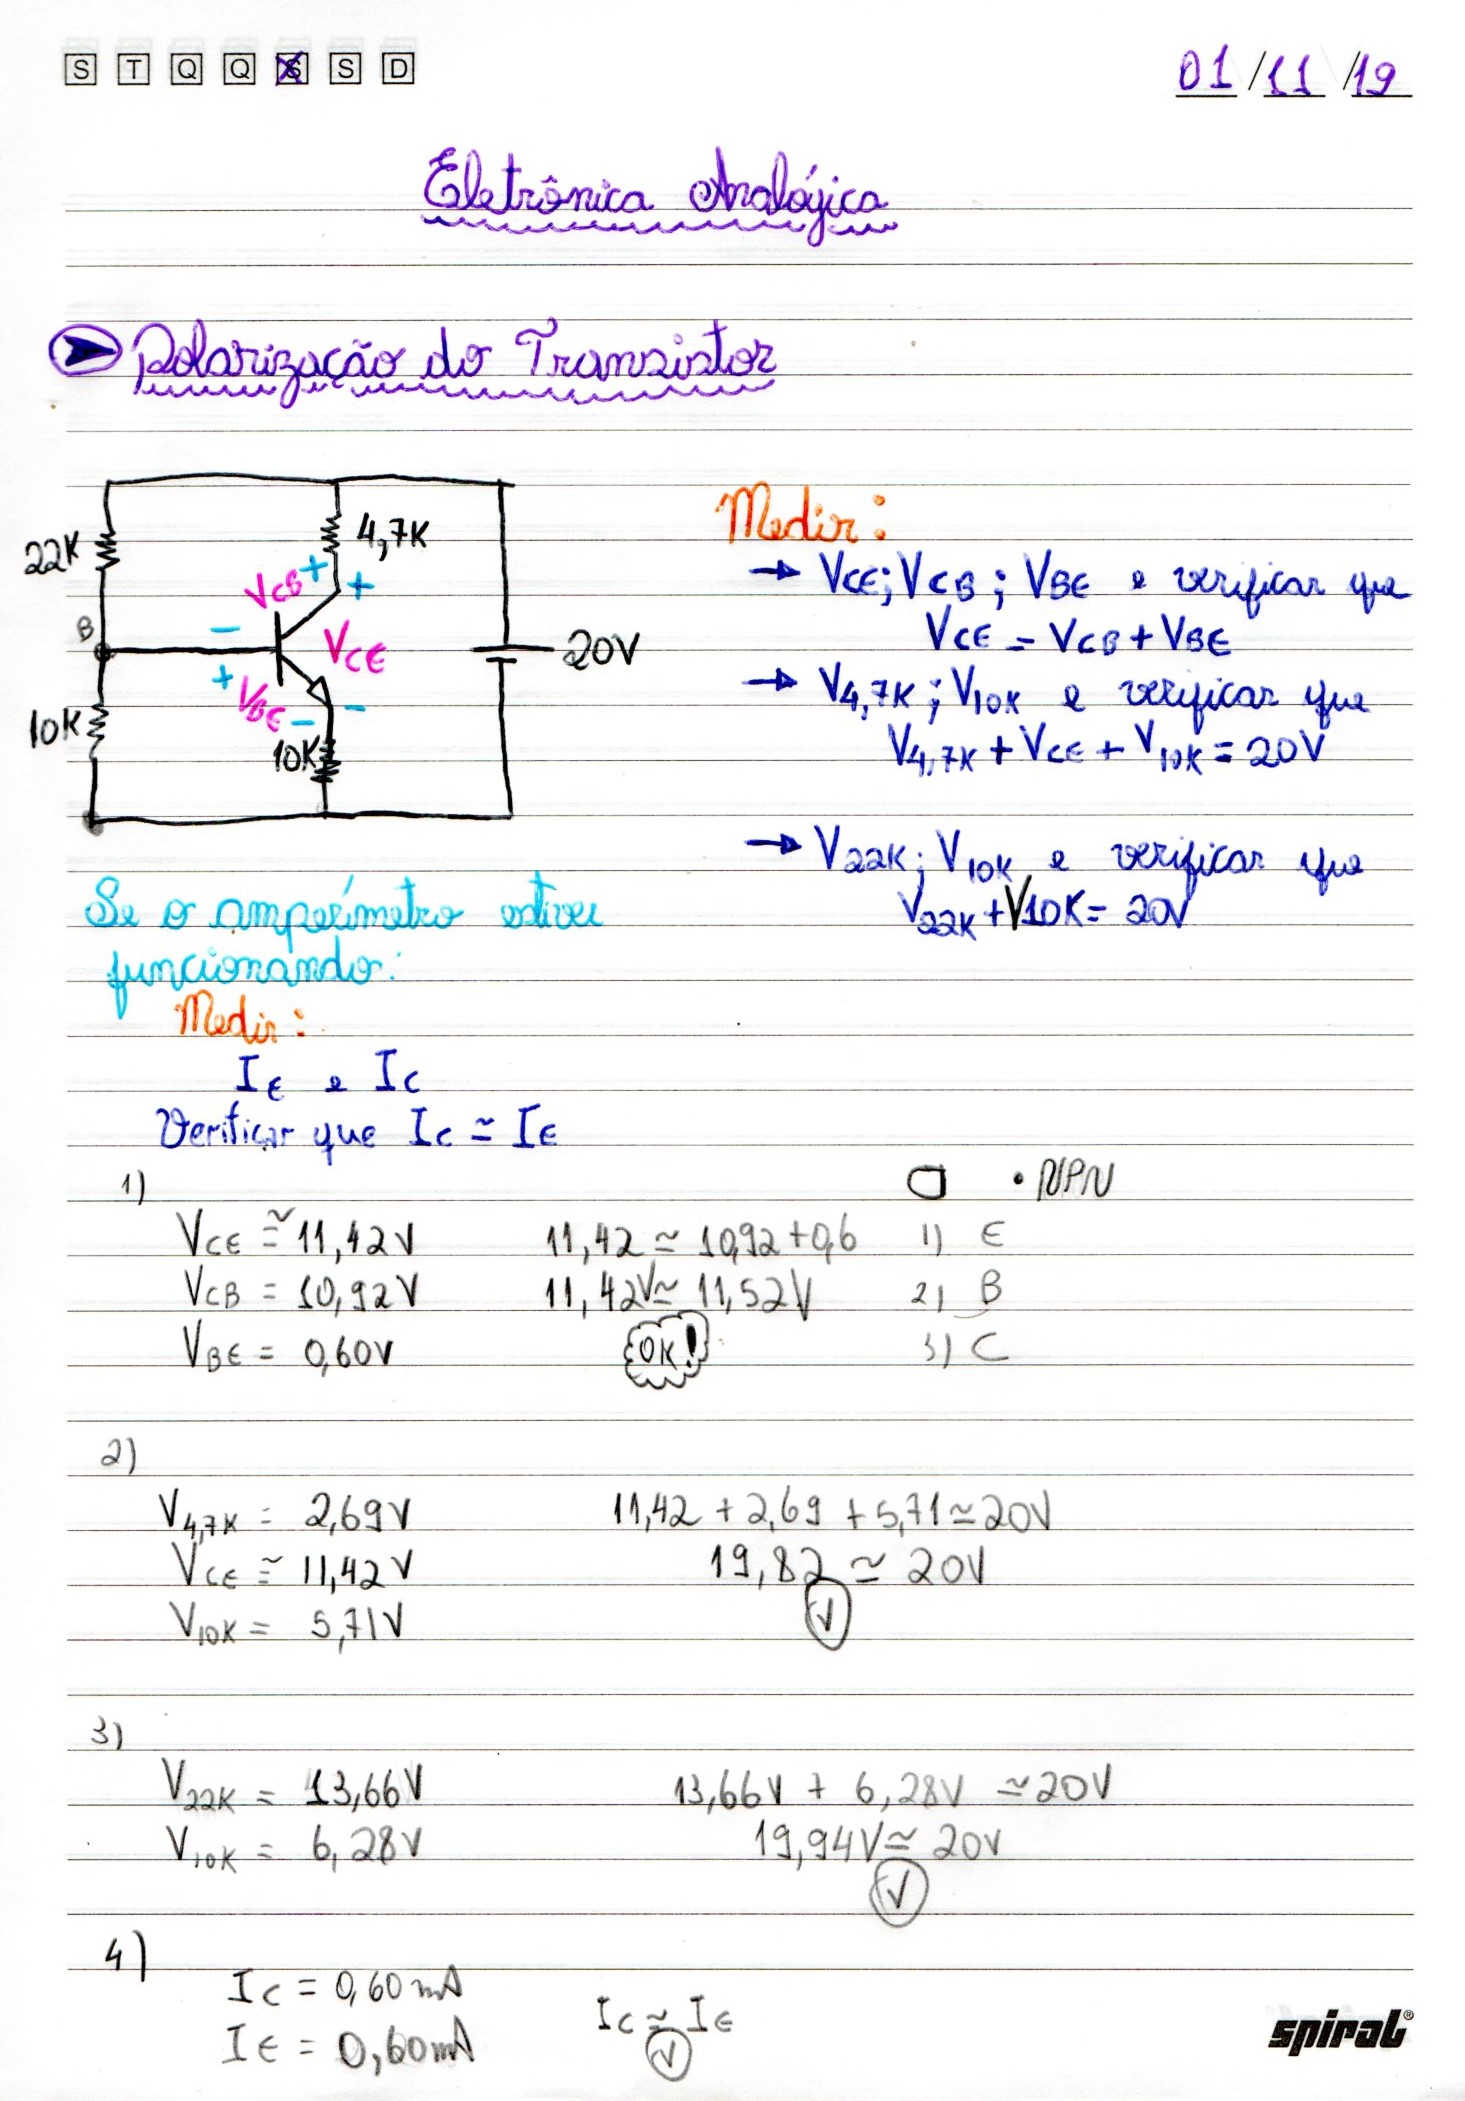 S T Q Q S S D
01/11/19
Eletrônica Analógica
Polarização do Transistor
22K
4,7K
VCB + +
B
-
VCE
20V
+ VBE - -
10K
10K
Medir:
→ VCE; VCB; VBE e verificar que
VCE = VCB + VBE
→ V4,7K; V10K e verificar que
V4,7K + VCE + V10K = 20V
→ V22K; V10K e verificar que
V22K + V10K = 20V
Se o amperímetro estiver
funcionando:
Medir:
IE e IC
Verificar que IC ≃ IE
1)
VCE ≃ 11,42V
VCB = 10,92V
VBE = 0,60V
11,42 ≃ 10,92 + 0,6
11,42V ≃ 11,52V
OK!
• NPN
1) E
2) B
3) C
2)
V4,7K = 2,69V
VCE ≃ 11,42V
V10K = 5,71V
11,42 + 2,69 + 5,71 ≃ 20V
19,82 ≃ 20V
3)
V22K = 13,66V
V10K = 6,28V
13,66V + 6,28V ≃ 20V
19,94V ≃ 20V
4)
IC = 0,60mA
IE = 0,60mA
IC ≃ IE
spiral®